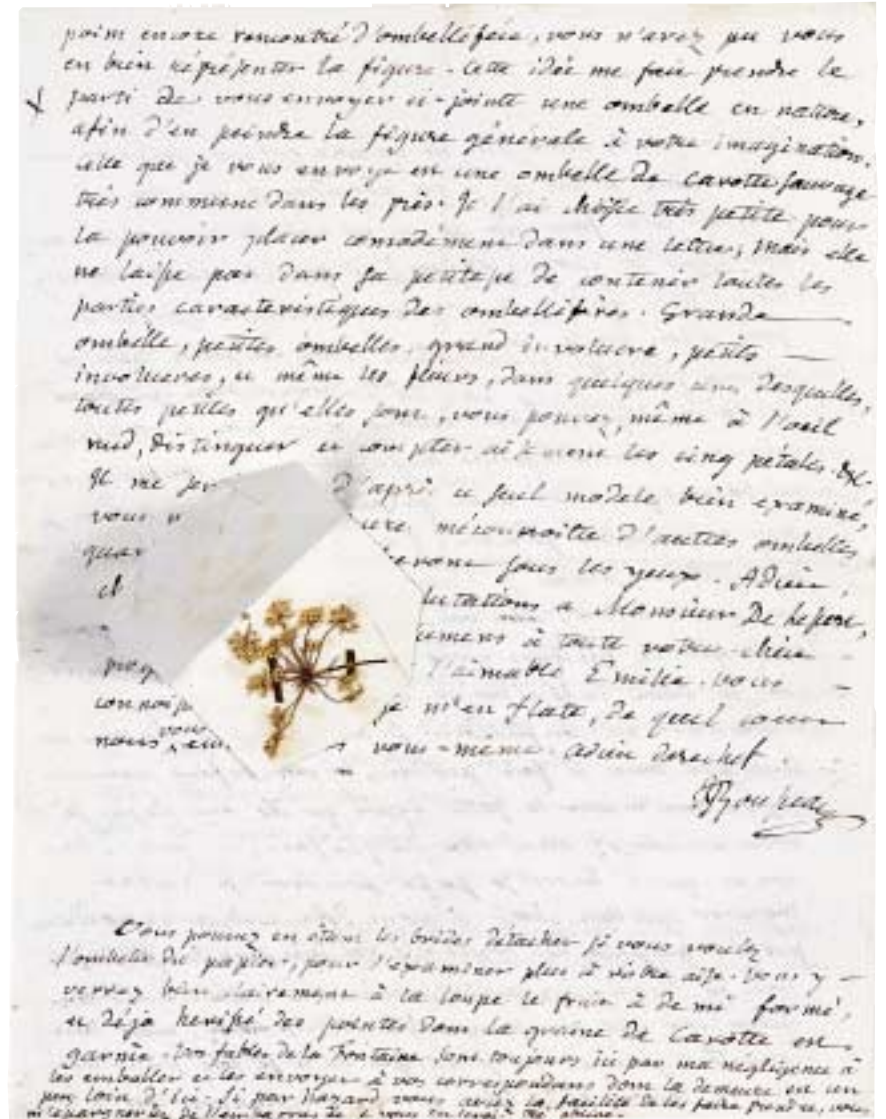 point encore rencontré d'ombellifère, vous n'avez pu vous
en bien représenter la figure. Cette idée me fait prendre le
parti de vous envoyer ci-jointe une ombelle en nature,
afin d'en peindre la figure générale à votre imagination.
celle que je vous envoye est une ombelle de carotte sauvage
très commune dans les prés. Je l'ai choisie très petite pour
la pouvoir placer comodément dans une lettre; mais elle
ne laisse pas dans sa petitesse de contenir toutes les
parties caracteristiques des ombellifères. Grande
ombelle, petites ombelles, grand involucre, petits
involucres, et même les fleurs, dans quelques unes desquelles,
toutes petites qu'elles sont, vous pouvez, même à l'oeil
nud, distinguer et compter aisément les cinq pétales. &c.
Je me d'après ce seul modele bien examiné,
vous méconnoitre d'autres ombelles
sous les yeux. Adieu
à Monsieur De
à toute votre chère
l'aimable Emilie. vous
je m'en flate, de quel coeur
nous vous vous-même. adieu derechef.
JJRousseau
Vous pouvez en ôtant les brides détacher si vous voulez
l'ombelle du papier, pour l'examiner plus à votre aise. Vous y
verrez bien clairement à la loupe le fruit à demi formé,
et déja herissé des pointes dont la graine de Carotte est
garnie. Vos fables de la Fontaine sont toujours ici par ma négligence à
les emballer et les envoyer à vos correspondans dont la demeure est un
peu loin d'ici. Si par hazard vous aviez la facilité de les faire prendre, vous